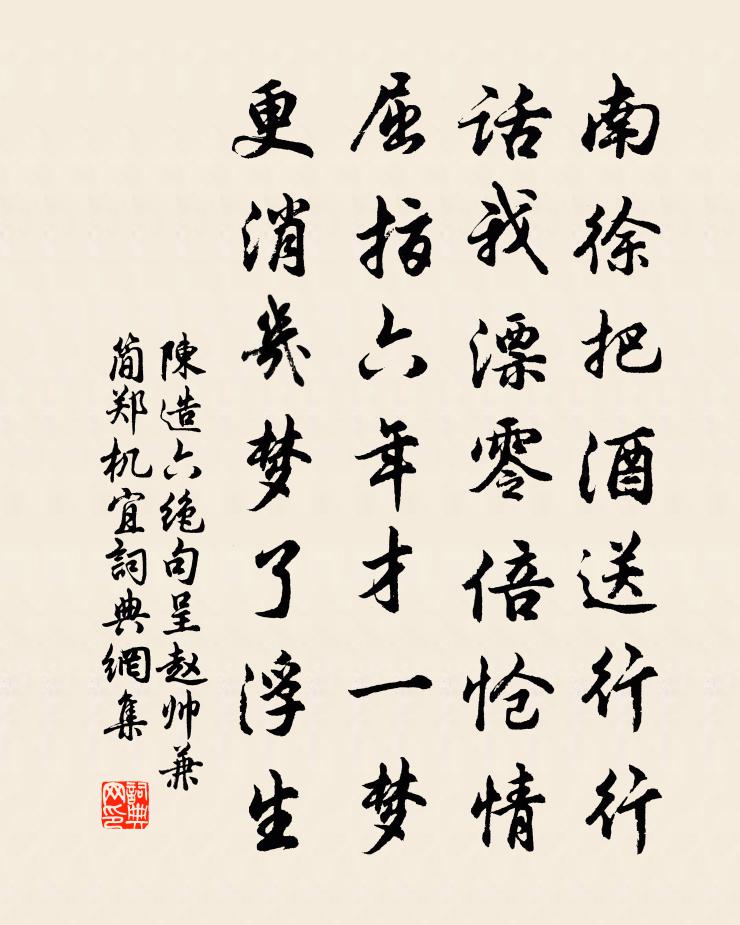 南徐把酒送行行
话我漂零倍怆情
屈指六年才一梦
更消几梦了浮生
陳造六绝句呈赵帅兼
简郑机宜詞典網集
詞典网印